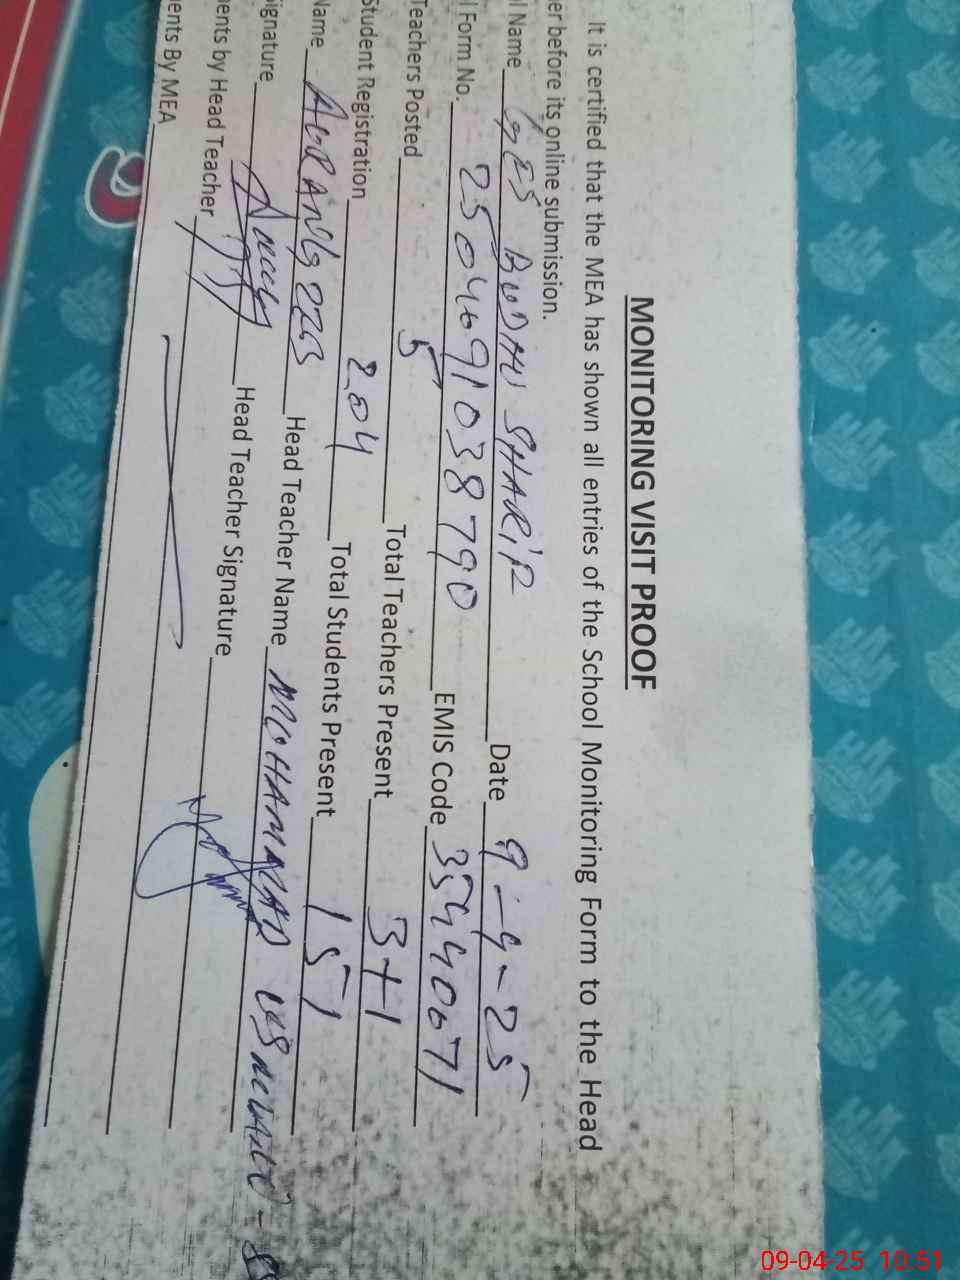 MONITORING VISIT PROOF
It is certified that the MEA has shown all entries of the School Monitoring Form to the Head
er before its online submission.
l Name GES BUDHU SHARIR Date 9-4-25
l Form No. 2504691038790 EMIS Code 35440071
Teachers Posted 5 Total Teachers Present 3+1
Student Registration 204 Total Students Present 151
Name AURANGZEB Head Teacher Name MUHAMMAD
ignature Head Teacher Signature
ents by Head Teacher
ents By MEA
09-04-25 10:51